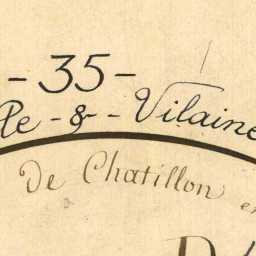 - 35 -
lle - & - Vilaine
de Chatillon en